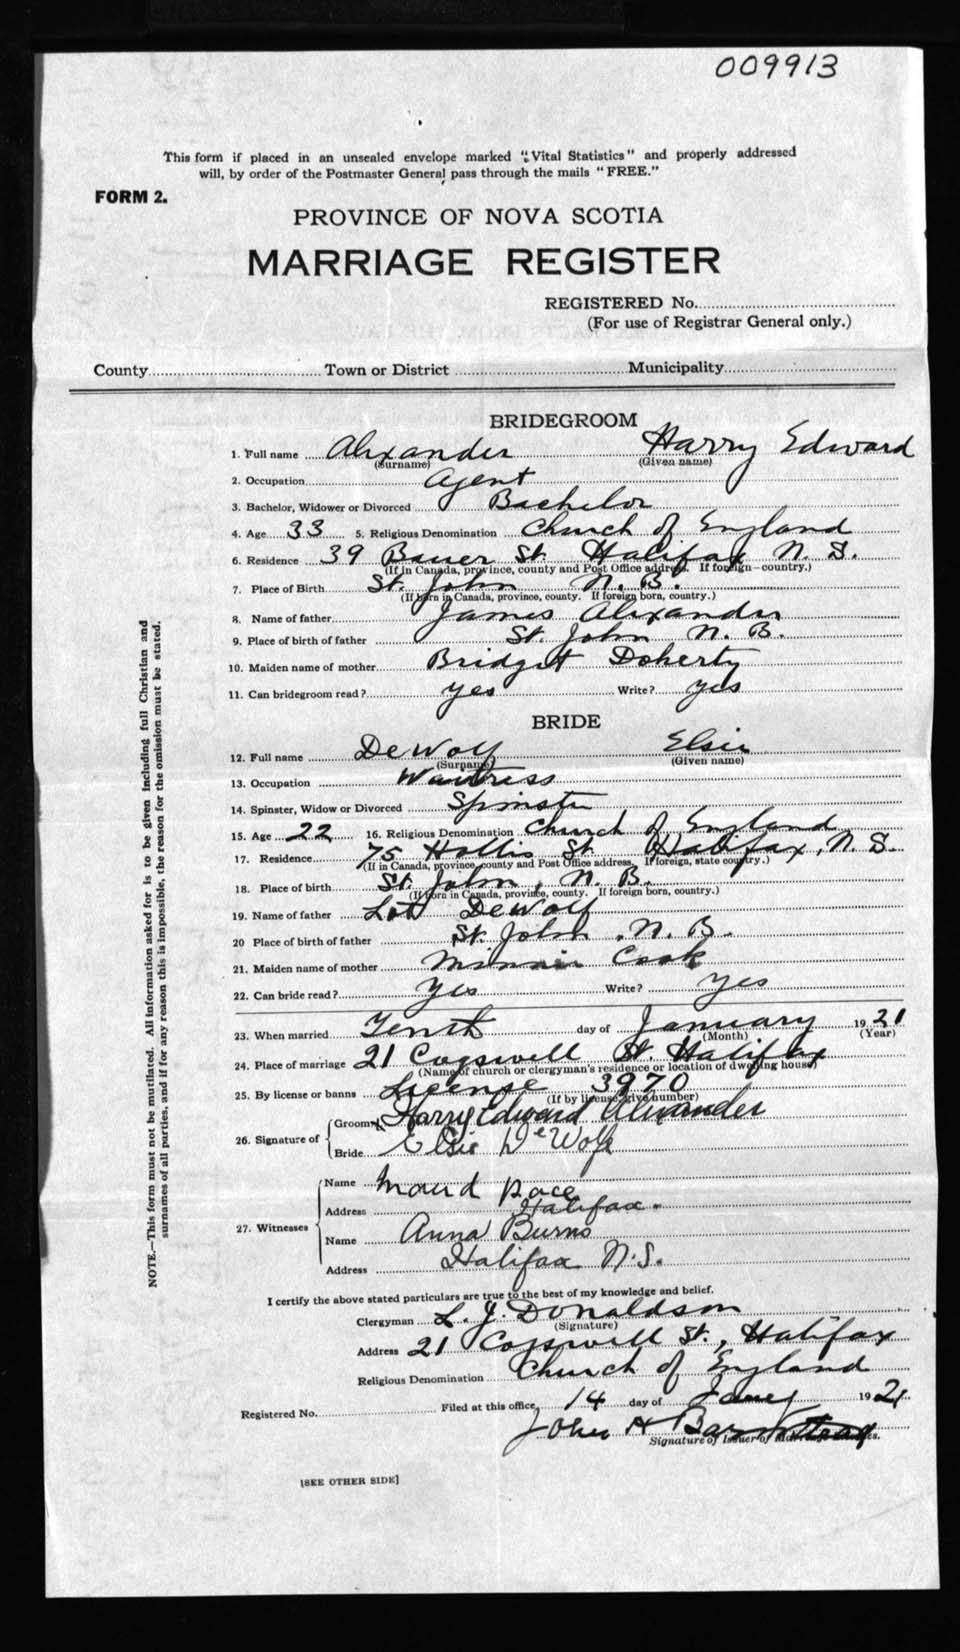 009913
This form if placed in an unsealed envelope marked "Vital Statistics" and properly addressed
will, by order of the Postmaster General pass through the mails "FREE."
FORM 2.
PROVINCE OF NOVA SCOTIA
MARRIAGE REGISTER
REGISTERED No.
(For use of Registrar General only.)
County Town or District Municipality
BRIDEGROOM
1. Full name Alexander Harry Edward
(Surname) (Given name)
2. Occupation Agent
3. Bachelor, Widower or Divorced Bachelor
4. Age 33 5. Religious Denomination Church of England
6. Residence 39 Bauer St. Halifax N. S.
(If in Canada, province, county and Post Office address. If foreign—country.)
7. Place of Birth St. John N. B.
(If born in Canada, province, county. If foreign born, country.)
8. Name of father James Alexander
9. Place of birth of father St. John N. B.
10. Maiden name of mother Bridget Doherty
11. Can bridegroom read? yes Write? yes
BRIDE
12. Full name DeWolf Elsie
(Surname) (Given name)
13. Occupation Waitress
14. Spinster, Widow or Divorced Spinster
15. Age 22 16. Religious Denomination Church of England
17. Residence 75 Hollis St. Halifax, N. S.
(If in Canada, province, county and Post Office address. If foreign, state country.)
18. Place of birth St. John, N. B.
(If born in Canada, province, county. If foreign born, country.)
19. Name of father Lot DeWolf
20 Place of birth of father St. John, N. B.
21. Maiden name of mother Minnie Cook
22. Can bride read? Yes Write? yes
23. When married Tenth day of January 1921
(Month) (Year)
24. Place of marriage 21 Cogswell St. Halifax
(Name of church or clergyman's residence or location of dwelling house)
25. By license or banns License 3970
(If by license, give number)
26. Signature of Groom Harry Edward Alexander
Bride Elsie DeWolf
27. Witnesses Name Maud Pace
Address Halifax.
Name Anna Burns
Address Halifax N.S.
I certify the above stated particulars are true to the best of my knowledge and belief.
Clergyman L. J. Donaldson
(Signature)
Address 21 Cogswell St., Halifax
Religious Denomination Church of England
Registered No. Filed at this office, 14 day of Jany 1921.
John H Barnstead
Signature of Issuer of Marriage Licenses.
[SEE OTHER SIDE]
NOTE.—This form must not be mutilated. All information asked for is to be given including full Christian and
surnames of all parties, and if for any reason this is impossible, the reason for the omission must be stated.